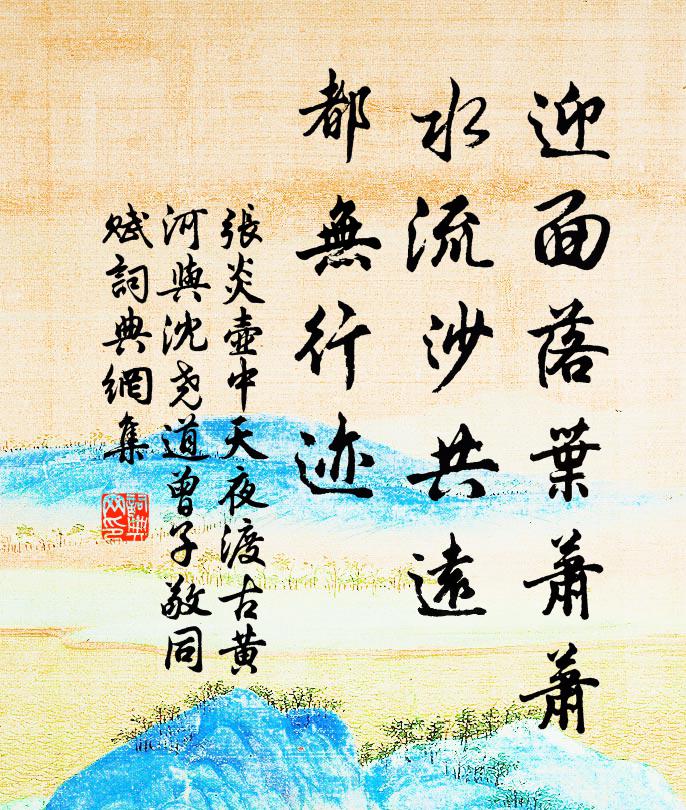 迎面落葉蕭蕭
水流沙共遠
都無行迹
張炎壺中天夜渡古黃
河與沈堯道曾子敬同
賦詞典網集